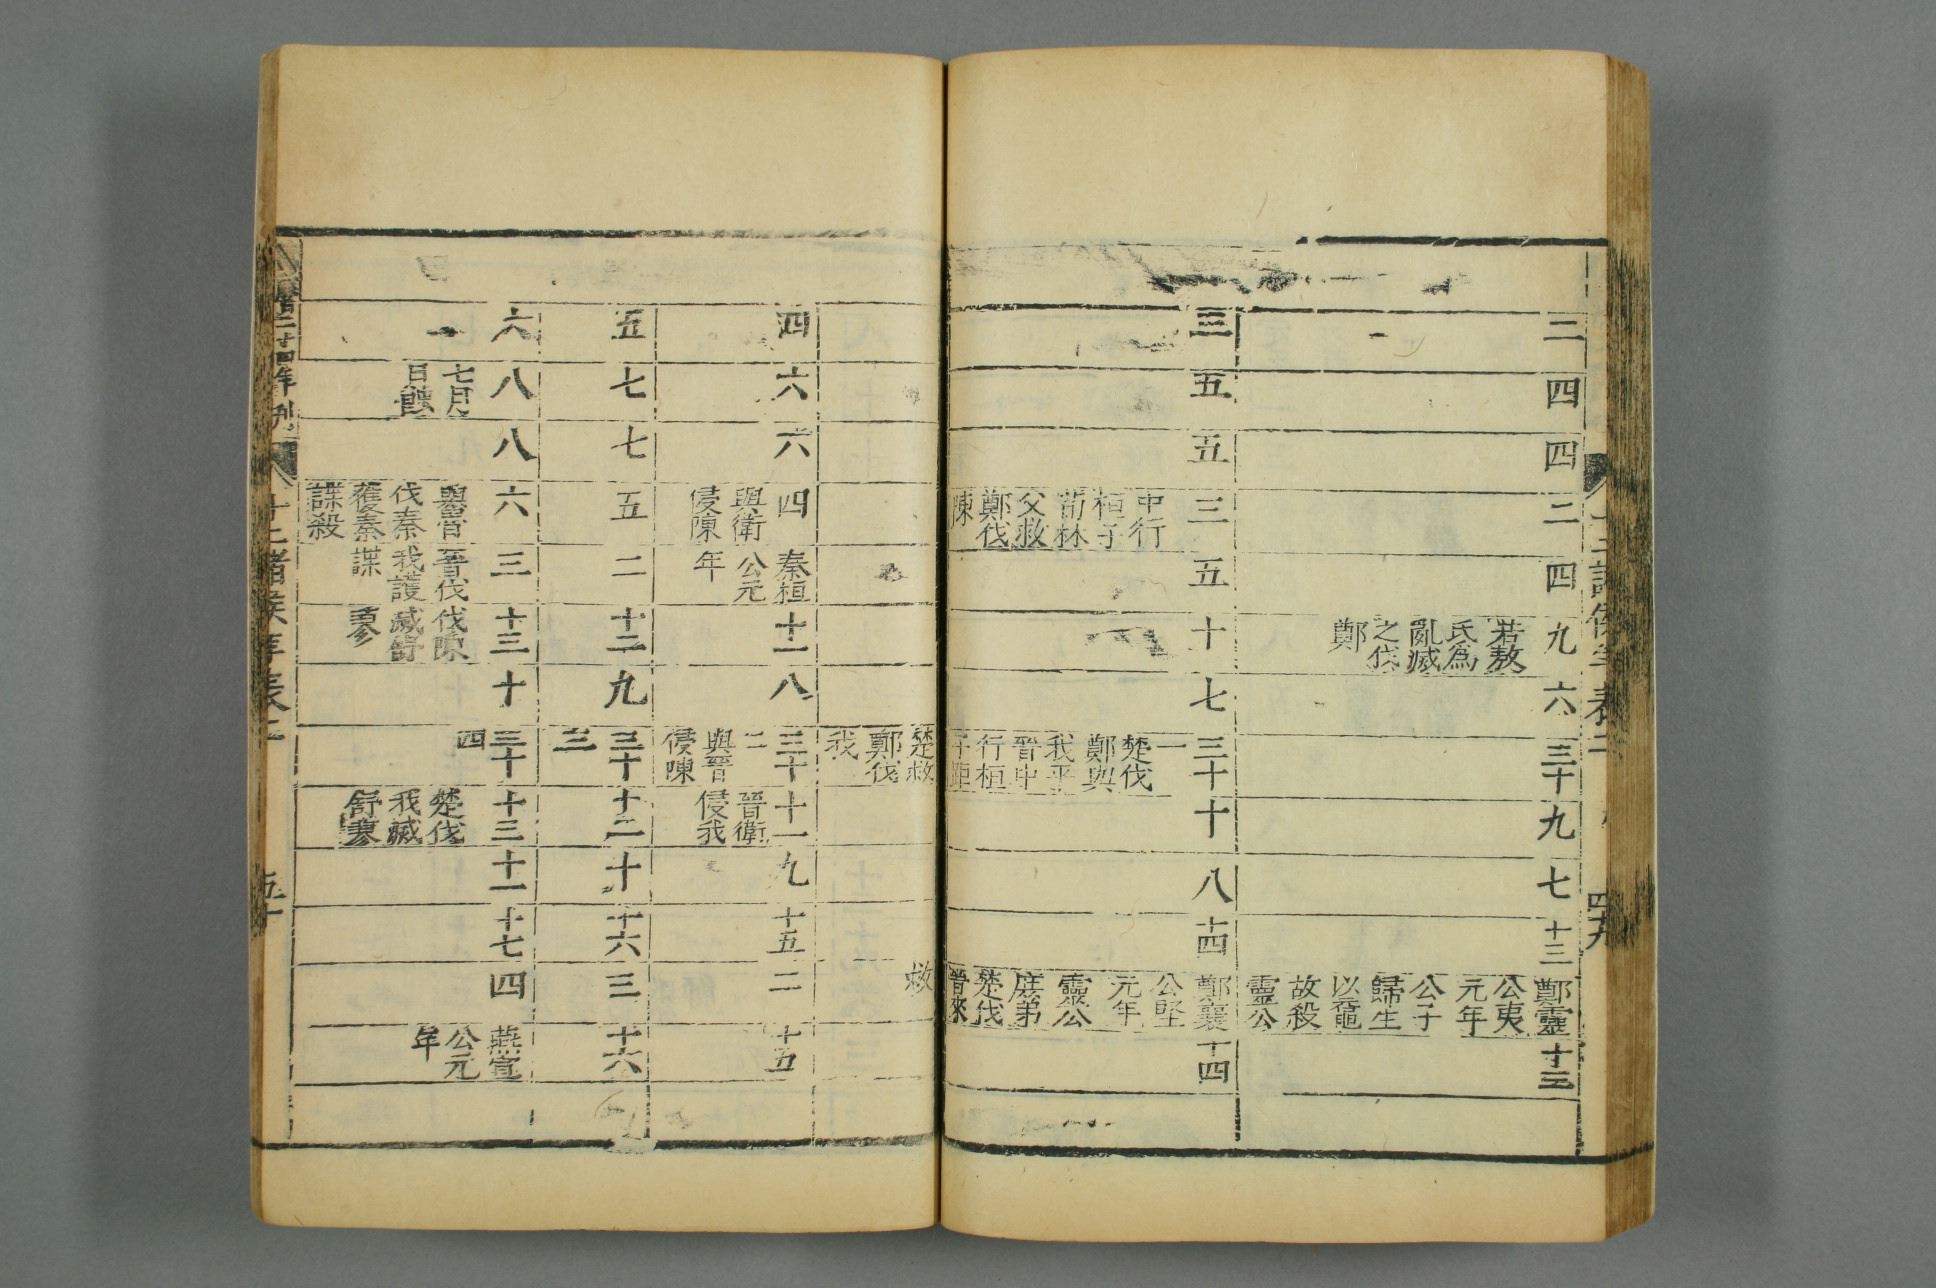 十二諸侯年表二
四十九
二
四
四
二
四
九
若敖
氏為
亂滅
之伐
鄭
六
三十
九
七
十二
鄭靈
公夷
元年
公子
歸生
以黿
故殺
靈公
十三
三
五
五
三
中行
桓子
荀林
父救
鄭伐
陳
五
十
七
三十
一
楚伐
鄭與
我平
晉中
行桓
子距
楚救
鄭伐
我
十
八
十四
鄭襄
公堅
元年
靈公
庶弟
楚伐
晉來
救
十四
四
六
六
四
與衛
侵陳
秦桓
公元
年
十一
八
三十
二
與晉
侵陳
十一
晉衛
侵我
九
十五
二
十五
五
七
七
五
二
十二
九
三十
三
十二
十
十六
三
十六
六
八
七月
日蝕
八
六
與晉
伐秦
獲秦
諜殺
三
晉伐
我獲
諜
十三
伐陳
滅舒
蓼
十
三十
四
十三
楚伐
我滅
舒蓼
十一
十七
四
燕宣
公元
年
二十四年刊
十二諸侯年表二
五十